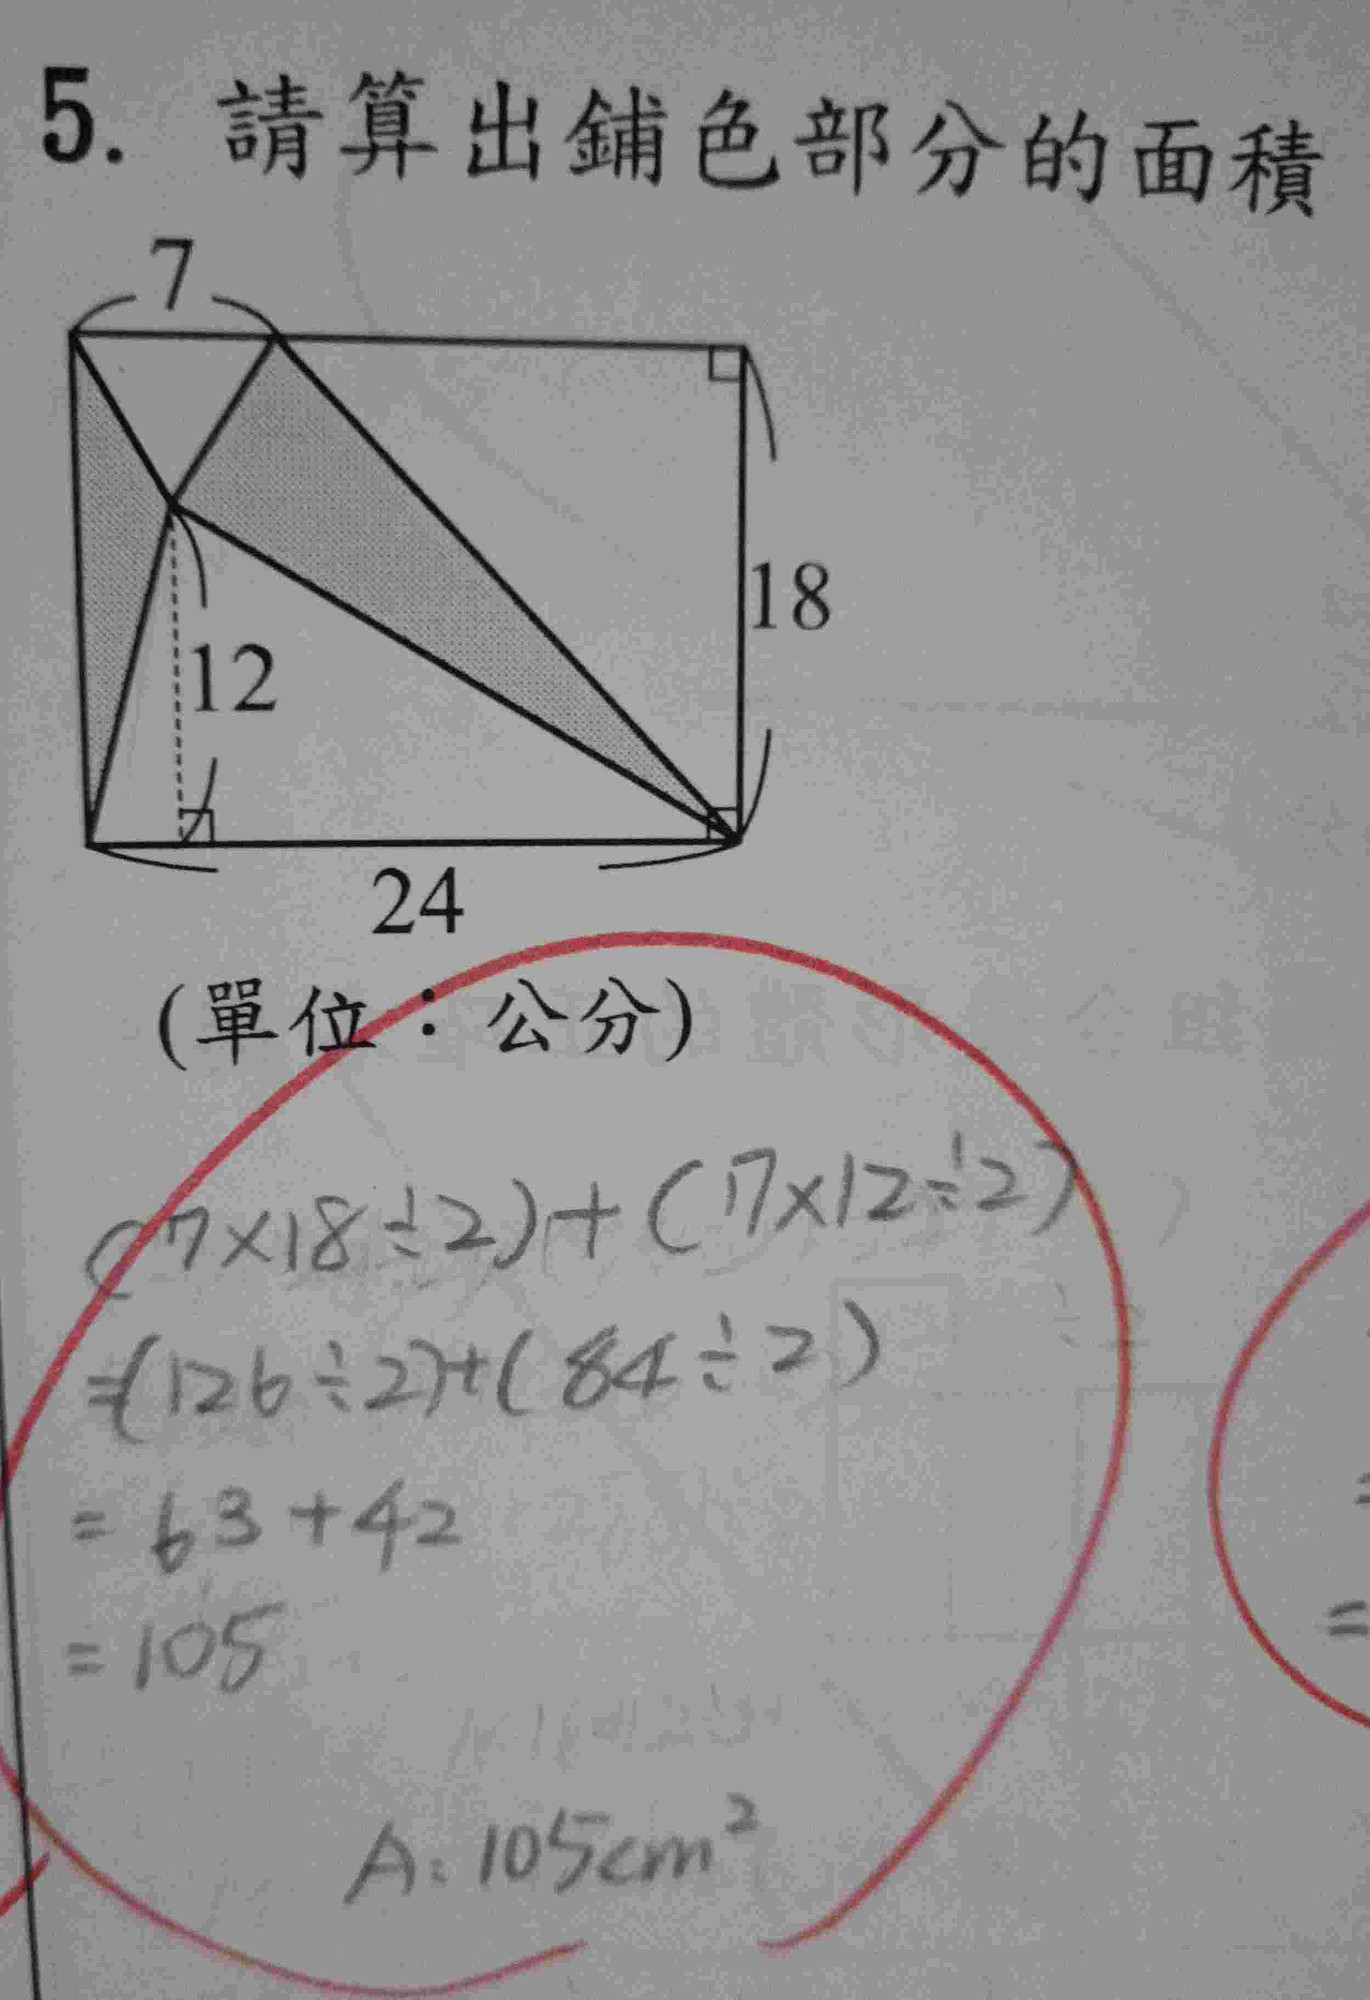 5. 請算出鋪色部分的面積
7
18
12
24
(單位：公分)
(7×18÷2)+(7×12÷2)
=(126÷2)+(84÷2)
= 63+42
= 105
A: 105cm²
=
=